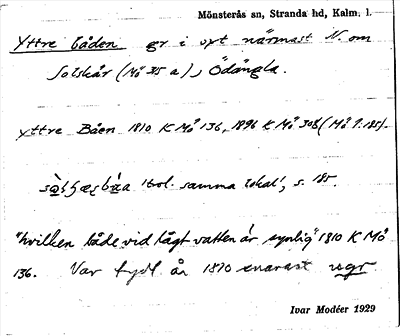 Mönsterås sn, Stranda hd, Kalm. l.
Yttre båden gr i oxt närmast N. om
Solskär (Mö 315 a), Ödängla.
Yttre Båen 1810 K Mö 136, 1896 K Mö 308 (Mö 9:185).
"isol. samma lokal", s. 185.
"hvilken både vid lågt vatten är synlig" 1810 K Mö
136. Var tydl. år 1870 snarast ugr
Ivar Modéer 1929